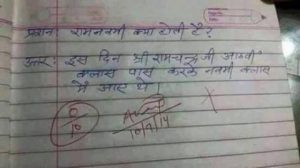 प्रश्न: रामनवमी क्या होती है?
उत्तर: इस दिन श्री रामचन्द्र जी आठवीं
क्लास पास करके नवमी क्लास
में आए थे।
0/10
10/9/14